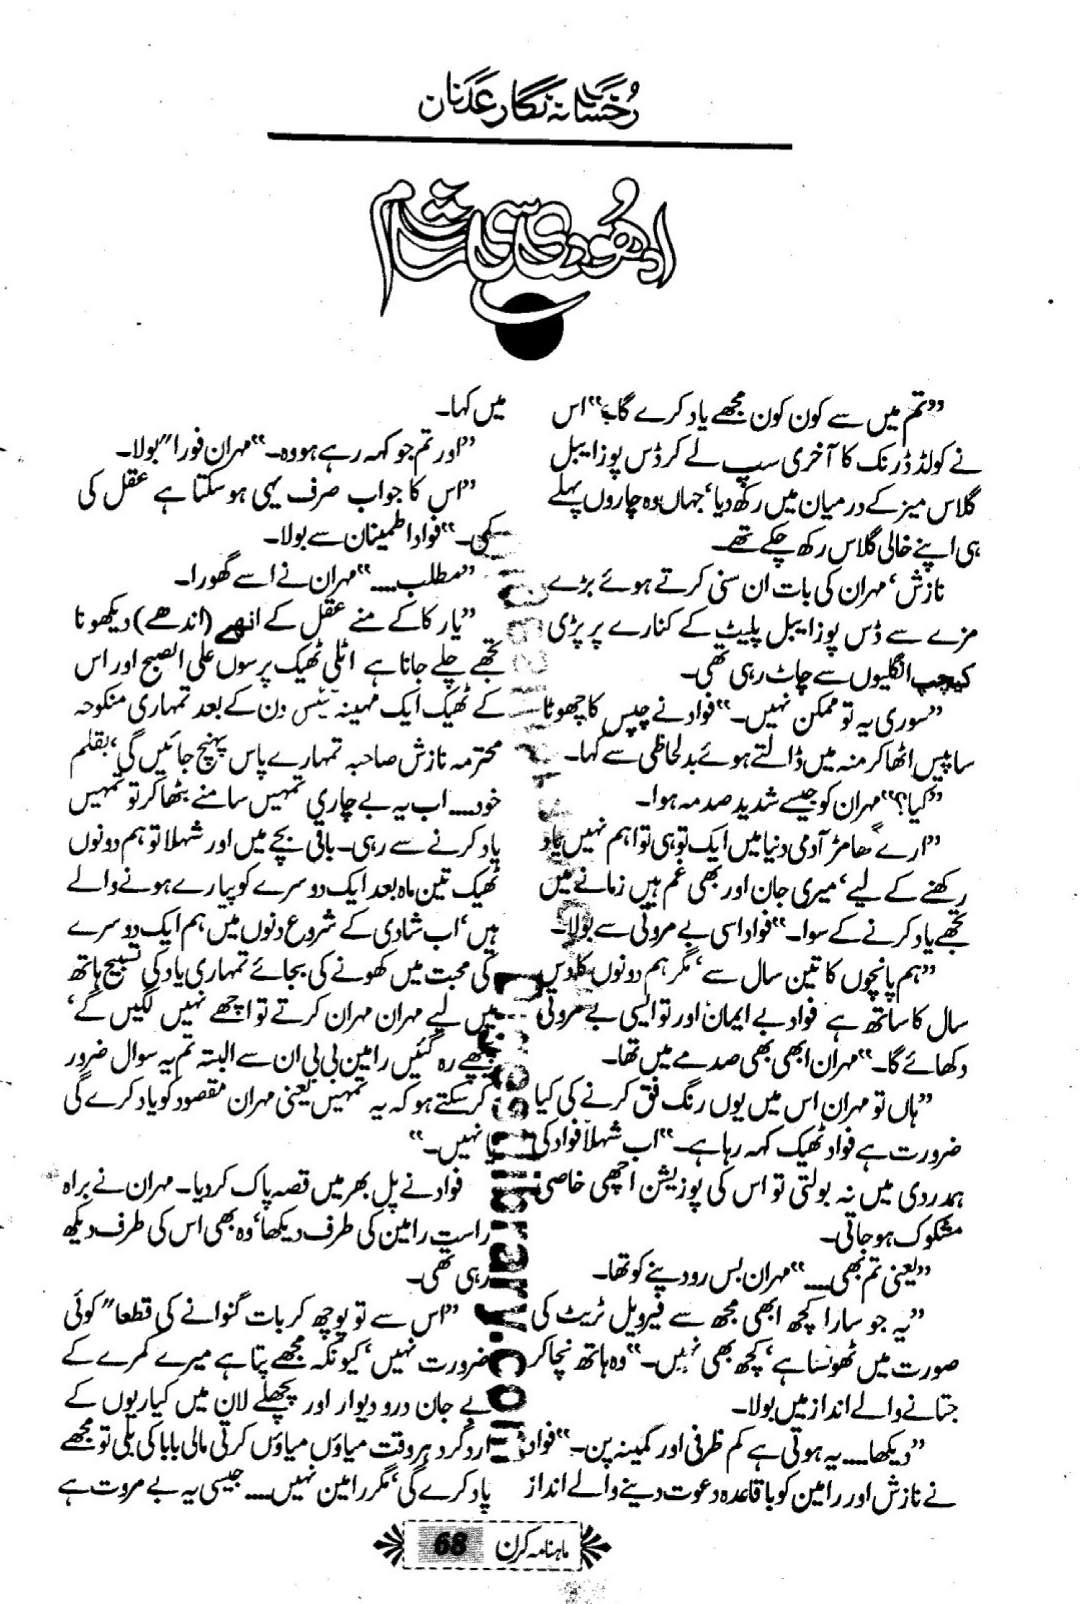 رُخسانہ نگار عدنان
ادھوری سی شام
”تم میں سے کون کون مجھے یاد کرے گا؟“ اس
نے کولڈ ڈرنک کا آخری سپ لے کر ڈس پوزایبل
گلاس میز کے درمیان میں رکھ دیا‘ جہاں وہ چاروں پہلے
ہی اپنے خالی گلاس رکھ چکے تھے۔
نازش‘ مہران کی بات ان سنی کرتے ہوئے بڑے
مزے سے ڈس پوزایبل پلیٹ کے کنارے پر پڑی
کیچپ انگلیوں سے چاٹ رہی تھی۔
”سوری یہ تو ممکن نہیں۔“ فواد نے چپس کا چھوٹا
سا پیس اٹھا کر منہ میں ڈالتے ہوئے بد لحاظی سے کہا۔
”کیا؟“ مہران کو جیسے شدید صدمہ ہوا۔
”ارے گھامڑ آدمی دنیا میں ایک تو ہی تو اہم نہیں یاد
رکھنے کے لیے‘ میری جان اور بھی غم ہیں زمانے میں
تجھے یاد کرنے کے سوا۔“ فواد اسی بے مروتی سے بولا۔
”ہم پانچوں کا تین سال سے‘ مگر ہم دونوں کا دس
سال کا ساتھ ہے فواد بے ایمان اور تو ایسی بے مروتی
دکھائے گا۔“ مہران ابھی بھی صدمے میں تھا۔
”ہاں تو مہران اس میں یوں رنگ فق کرنے کی کیا
ضرورت ہے فواد ٹھیک کہہ رہا ہے۔“ اب شہلا فواد کی
ہمدردی میں نہ بولتی تو اس کی پوزیشن اچھی خاصی
مشکوک ہو جاتی۔
”یعنی تم بھی....“ مہران بس رو دینے کو تھا۔
”یہ جو سارا کچھ ابھی مجھ سے فیرویل ٹریٹ کی
صورت میں ٹھونسا ہے‘ کچھ بھی نہیں۔“ وہ ہاتھ نچا کر
جتانے والے انداز میں بولا۔
”دیکھا.... یہ ہوتی ہے کم ظرفی اور کمینہ پن۔“ فواد
نے نازش اور رامین کو باقاعدہ دعوت دینے والے انداز
میں کہا۔
”اور تم جو کہہ رہے ہو وہ۔“ مہران فوراً بولا۔
”اس کا جواب صرف یہی ہو سکتا ہے عقل کی
کمی۔“ فواد اطمینان سے بولا۔
”مطلب....“ مہران نے اسے گھورا۔
”یار کاکے منے عقل کے انھے (اندھے) دیکھو نا
تجھے چلے جانا ہے اٹلی ٹھیک پرسوں علی الصبح اور اس
کے ٹھیک ایک مہینہ بیس دن کے بعد تمہاری منکوحہ
محترمہ نازش صاحبہ تمہارے پاس پہنچ جائیں گی‘ بقلم
خود.... اب یہ بے چاری تمہیں سامنے بٹھا کر تو تمہیں
یاد کرنے سے رہی۔ باقی بچے میں اور شہلا تو ہم دونوں
ٹھیک تین ماہ بعد ایک دوسرے کو پیارے ہونے والے
ہیں‘ اب شادی کے شروع دنوں میں ہم ایک دوسرے
کی محبت میں کھونے کی بجائے تمہاری یاد کی تسبیح ہاتھ
میں لیے مہران مہران کرتے تو اچھے نہیں لگیں گے‘
پیچھے رہ گئیں رامین بی بی ان سے البتہ تم یہ سوال ضرور
کر سکتے ہو کہ یہ تمہیں یعنی مہران مقصود کو یاد کرے گی
یا نہیں۔“
فواد نے پل بھر میں قصہ پاک کر دیا۔ مہران نے براہ
راست رامین کی طرف دیکھا‘ وہ بھی اس کی طرف دیکھ
رہی تھی۔
”اس سے تو پوچھ کر بات گنوانے کی قطعاً کوئی
ضرورت نہیں‘ کیونکہ مجھے پتا ہے میرے کمرے کے
بے جان درو دیوار اور پچھلے لان میں کیاریوں کے
ارد گرد ہر وقت میاؤں میاؤں کرتی مالی بابا کی بلی تو مجھے
یاد کرے گی‘ مگر رامین نہیں.... جیسی یہ بے مروت ہے
ماہنامہ کرن 68
UrduLibrary.com